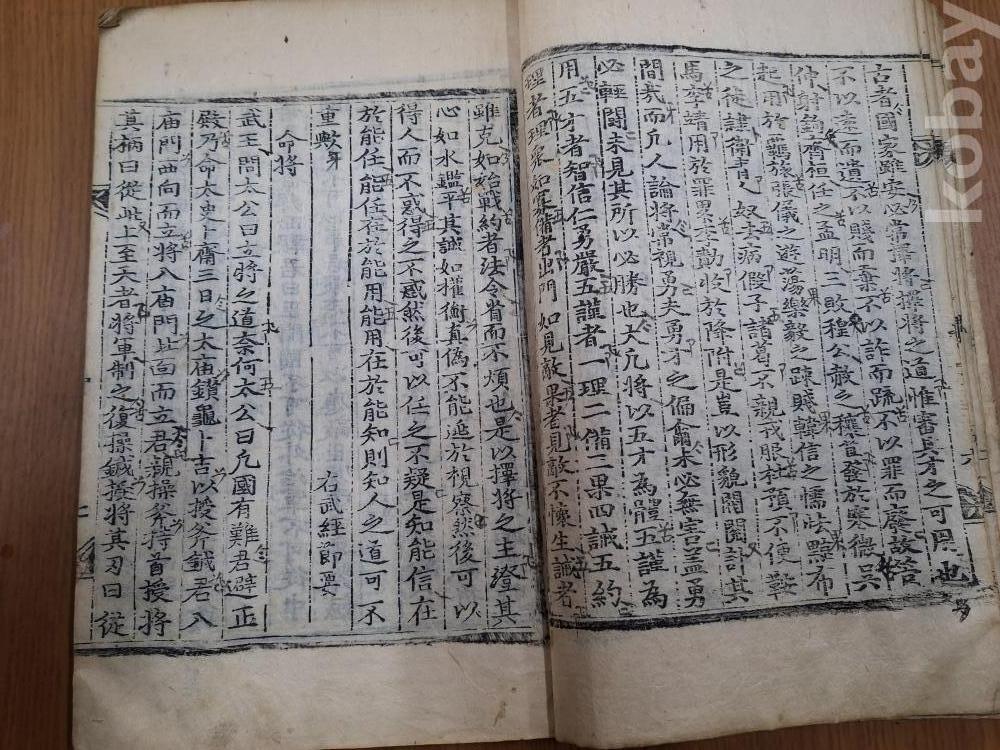 古者國家雖安必常擇將擇將之道惟審其才之可用也
不以遠而遺不以賤而棄不以詐而疏不以罪而廢故管
仲射鉤齊桓任之孟明三敗穆公赦之穰苴發於寒微吳
起用於羈旅張儀之遊蕩樂毅之踈賤韓信之懦怯黥布
之徒隸衛青人奴去病假子諸葛不親戎服杜預不便鞍
馬李靖用於罪累李勣收於降附是豈以形貌閥閱計其
間哉而凡人論將常視勇夫勇才之偏爾未必無害盖勇
必輕鬪未見其所以必勝也大凡將以五才為體五謹為
用五才者智信仁勇嚴五謹者一理二備三果四誡五約
理者理衆如寡備者出門如見敵果者見敵不懷生誡者
雖克如始戰約者法令省而不煩也是以擇將之主澄其
心如水鑑平其誠如權衡真偽不能逃於視察然後可以
得人而不惑得之不惑然後可以任之不疑是知能信在
於能任能任在於能用能用在於能知則知人之道可不
重歟 右武經節要
命將
武王問太公曰立將之道奈何太公曰凡國有難君避正
殿乃命太史卜齋三日之太廟鑽龜卜吉以授斧鉞君入
廟門西向而立將入廟門北面而立君親操斧持首授將
其柄曰從此上至天者將軍制之復操鉞授將其刃曰從
kobay